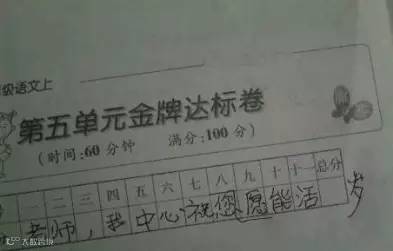 级语文上
第五单元金牌达标卷
(时间:60分钟 满分:100分)
一 二 三 四 五 六 七 八 九 十 十一 总分
老师,我中心祝您愿能活 岁
大力快跑